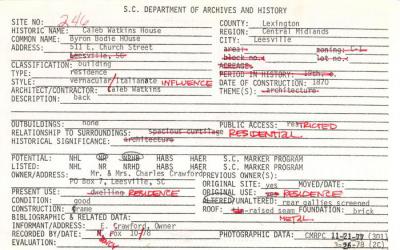 S.C. DEPARTMENT OF ARCHIVES AND HISTORY
SITE NO.: 246
COUNTY: Lexington
HISTORIC NAME: Caleb Watkins House
REGION: Central Midlands
COMMON NAME: Byron Bodie HOuse
CITY: Leesville
ADDRESS: 511 E. Church Street
area: zoning: C-1
Leesville, SC
block no.: lot no.:
ACREAGE:
CLASSIFICATION: building
PERIOD IN HISTORY: 19th c.
TYPE: residence
DATE OF CONSTRUCTION: 1870
STYLE: vernacular/italianate INFLUENCE
THEME(S): architecture
ARCHITECT/CONTRACTOR: Caleb Watkins
DESCRIPTION: back
OUTBUILDINGS: none
PUBLIC ACCESS: resTRICTED
RELATIONSHIP TO SURROUNDINGS: spacious curtilage RESIDENTIAL
HISTORICAL SIGNIFICANCE: architecture
POTENTIAL: NHL NR NRHD HABS HAER S.C. MARKER PROGRAM
LISTED: NHL NR NRHD HABS HAER S.C. MARKER PROGRAM
OWNER/ADDRESS: Mr. & Mrs. Charles Crawford
PREVIOUS OWNER(S):
PO Box 7, Leesville, SC
ORIGINAL SITE: yes MOVED/DATE:
PRESENT USE: dwelling RESIDENCE
ORIGINAL USE: RESIDENCE
CONDITION: good
ALTERED/UNALTERED: rear gallies screened
CONSTRUCTION: frame
ROOF: -raised seam FOUNDATION: brick
METAL
BIBLIOGRAPHIC & RELATED DATA:
INFORMANT/ADDRESS: E. Crawford, Owner
RECORDED BY/DATE: Fox 10/78
PHOTOGRAPHIC DATA: CMRPC 11-21-77 (301)